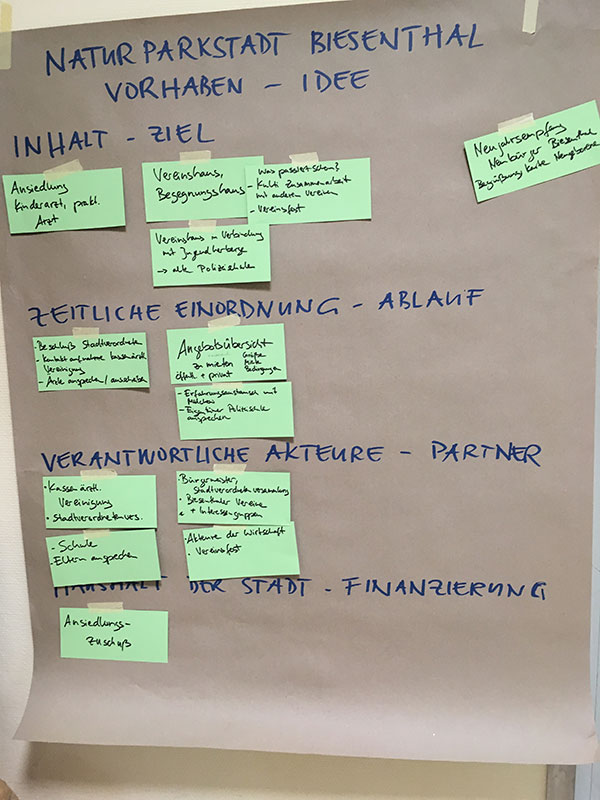 NATURPARKSTADT BIESENTHAL
VORHABEN - IDEE
INHALT - ZIEL
Neujahrsempfang
Neubürger Biesenthal
Begrüßung Neugeborene
Ansiedlung
Kinderarzt, prakt.
Arzt
Vereinshaus,
Begegnungshaus
Was passiert schon?
- Kulti Zusammenarbeit
mit anderen Vereinen
- Vereinsfest
Vereinshaus in Verbindung
mit Jugendherberge
→ alte Polizeischule
ZEITLICHE EINORDNUNG - ABLAUF
- Beschluß Stadtverordnete
- Kontaktaufnahme kassenärztl.
Vereinigung
- Ärzte ansprechen/
Angebotsübersicht
zu mieten Größe
öffentl + privat Bedingungen
- Erfahrungsaustausch mit
Melchow
- Eigentümer
ansprechen
VERANTWORTLICHE AKTEURE - PARTNER
• Kassenärztl.
Vereinigung
• Stadtverordnetenvers.
• Bürgermeister,
Stadtverordnetenversammlung
• Biesenthaler Vereine
• + Interessengruppen
- Schule
- Eltern ansprechen
• Akteure der Wirtschaft
• Vereinsfest
HAUSHALT DER STADT - FINANZIERUNG
Ansiedlungs-
zuschuß